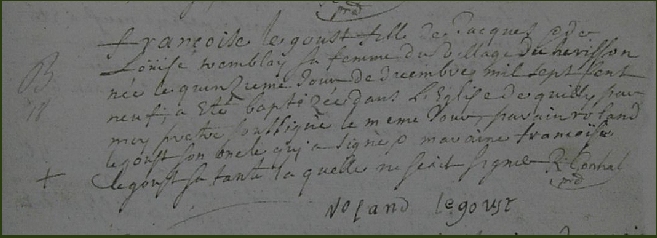 prd
B
françoise legoust fille de Jacques & de
Louise tremblay sa femme du village du herisson
née le quinzieme Jour de decembre mil sept sent
neuf, a Eté baptizée dans L'Eglise de par
moy pretre soussigné le meme Jour, parain roland
legoust son oncle qui a signé & maraine francoise
+ legoust sa tante la quelle ne scait signer R.
prd
roland legoust